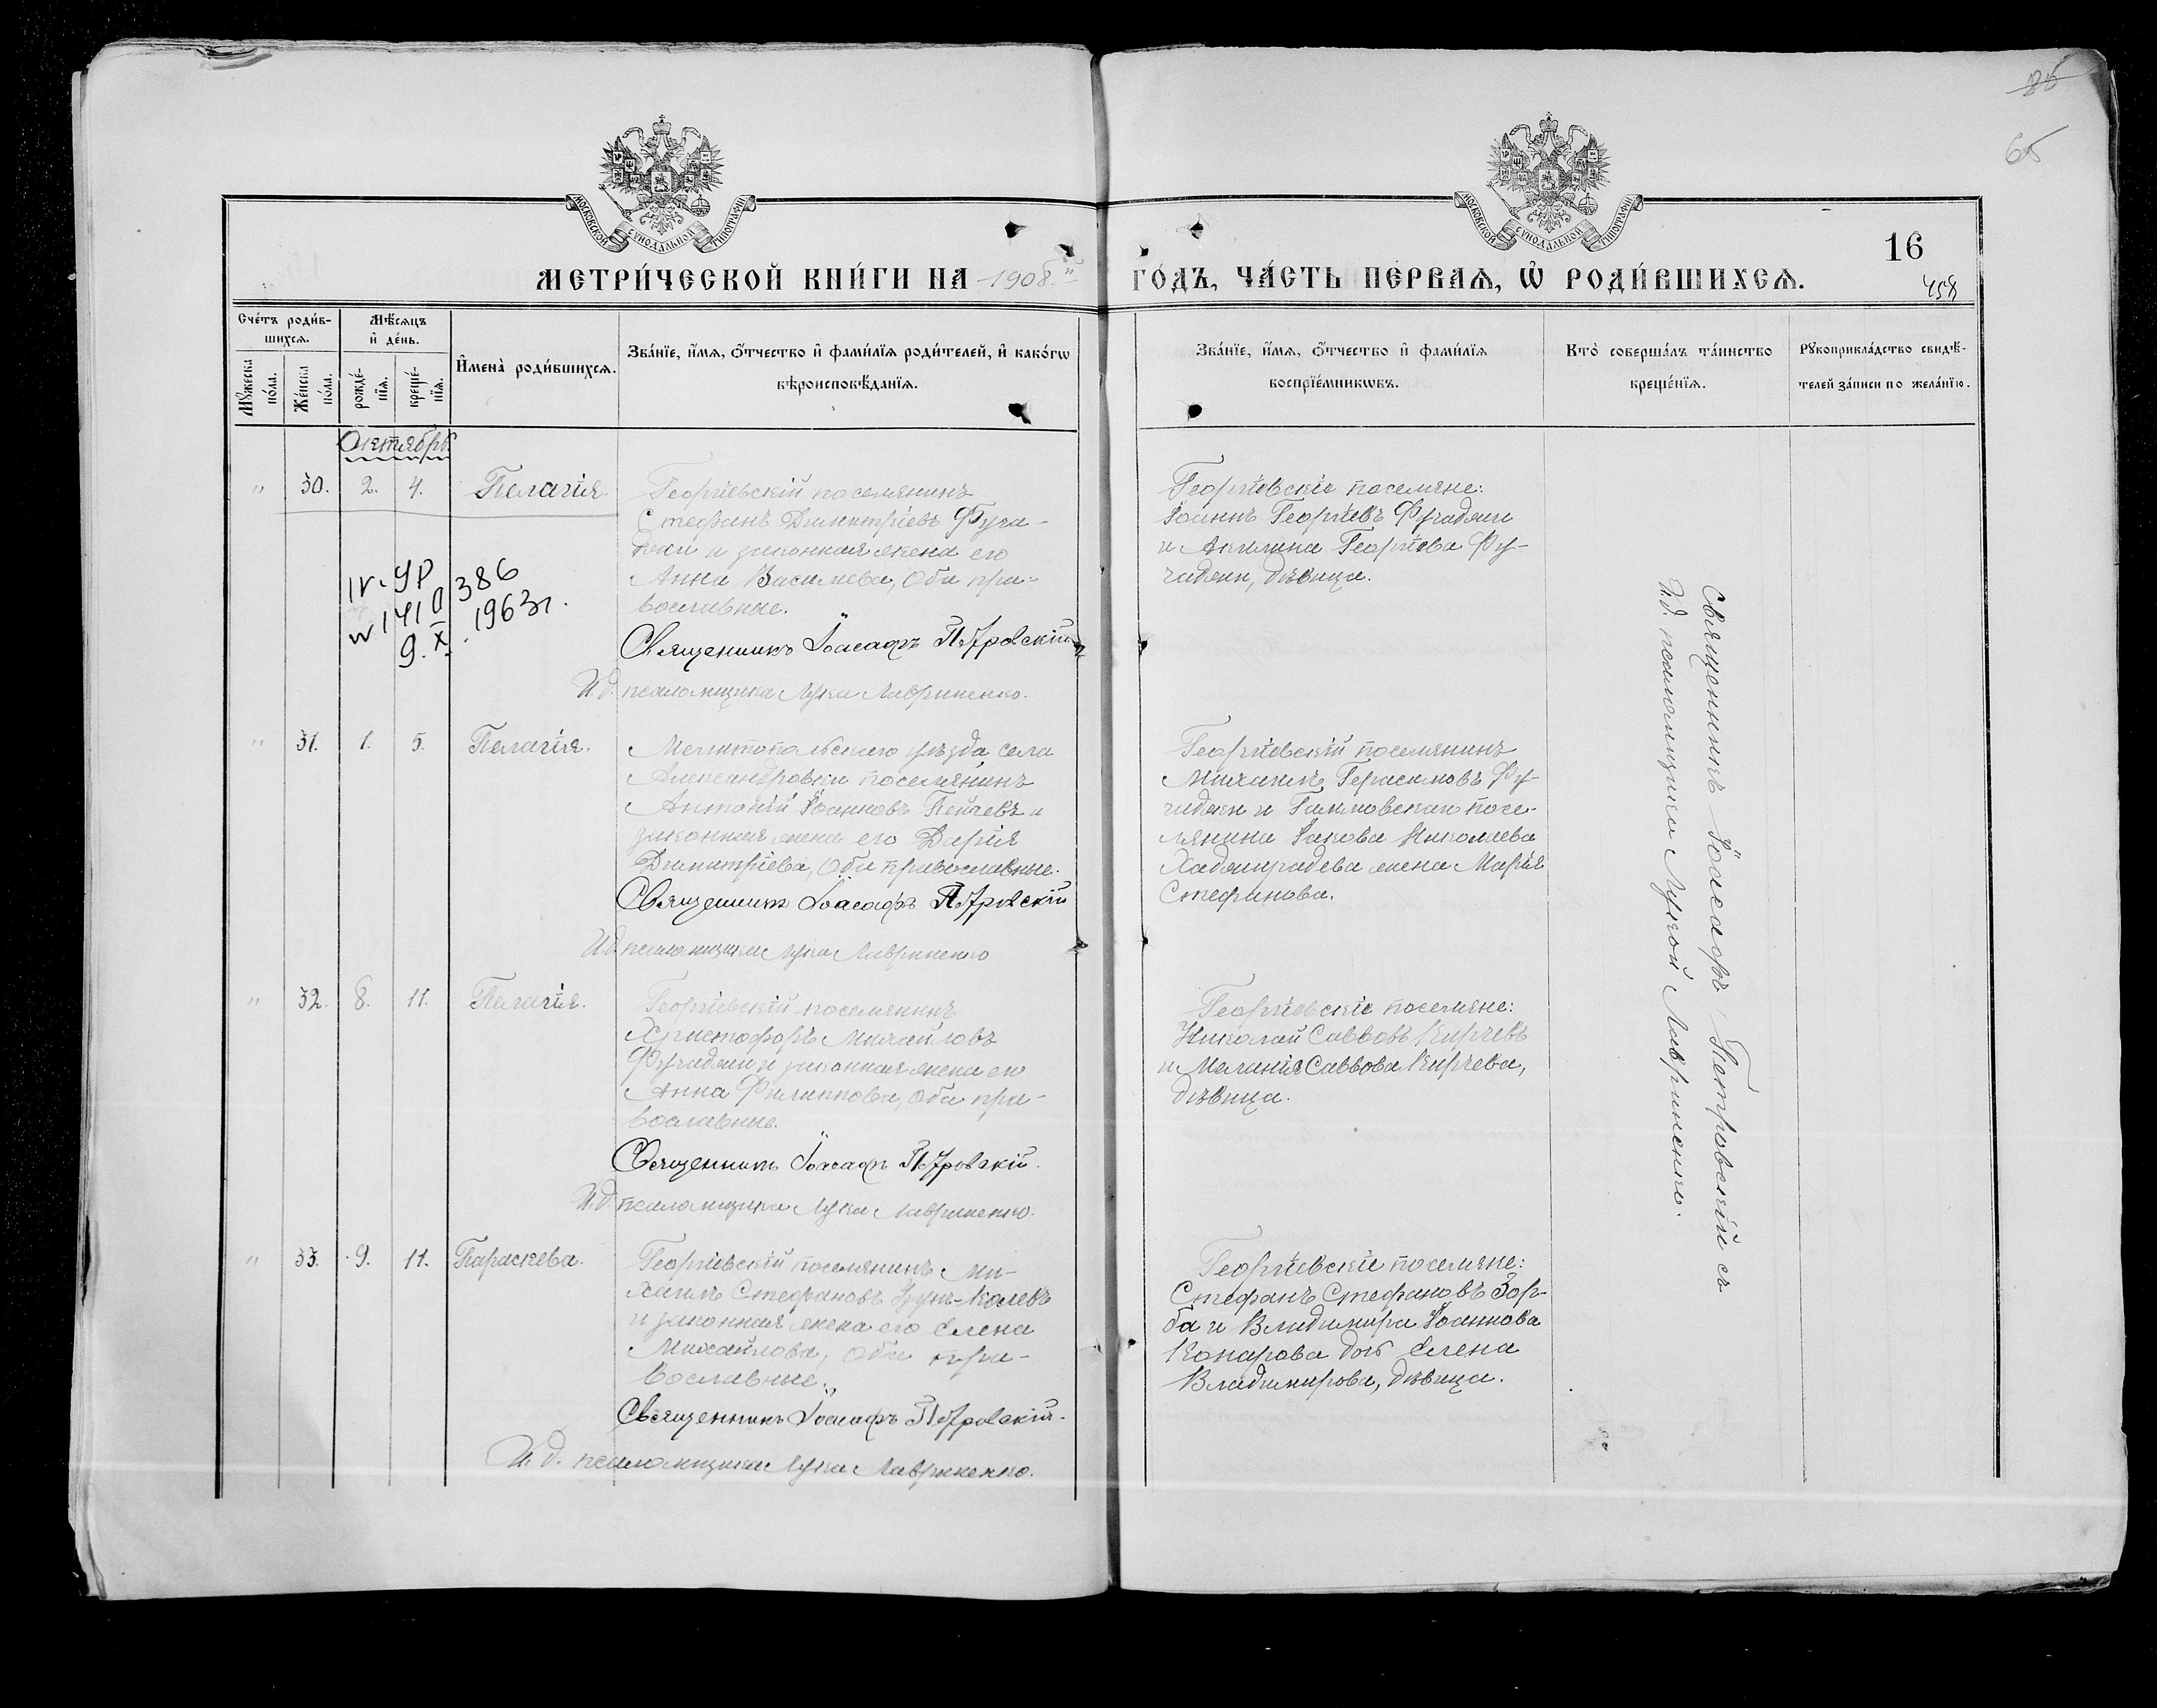 86
65
МОСКОВСКОЙ СѴНОДАЛЬНОЙ ТИПОГРАФІИ
МОСКОВСКОЙ СѴНОДАЛЬНОЙ ТИПОГРАФІИ
МЕТРИ́ЧЕСКОЙ КНИ́ГИ НА 1908.й ГО́ДЪ, ЧА́СТЬ ПЕ́РВАѦ, Ѡ҆ РОДИ́ВШИХСѦ.
16
458
Сче́тъ роди́в-
шихсѧ.
Мꙋ́жеска по́ла.
Же́нска по́ла.
Мѣ́сѧцъ
и҆ де́нь.
рожде́-
нїѧ.
креще́-
нїѧ.
И҆мена̀ роди́вшихсѧ.
Зва́нїе, и҆́мѧ, ѻ҆́тчество и҆ фами́лїѧ роди́телей, и҆ како́гѡ
вѣроисповѣ́данїѧ.
Зва́нїе, и҆́мѧ, ѻ҆́тчество и҆ фами́лїѧ
воспрїе́мникѡвъ.
Кто̀ соверша́лъ та́инство
креще́нїѧ.
Рꙋкоприкла́дство свидѣ́-
телей за́писи по жела́нїю.
Октябрь
" 30. 2. 4. Пелагія.
Георгіевскій поселянинъ
Стефанъ Димитріевъ Фучи-
джи и законная жена его
Анна Василиева, оба пра-
вославные.
Священникъ Іоасафъ Петровскій
И.д. псаломщика Лука Лавриненко.
Георгіевскіе поселяне:
Іоаннъ Георгіевъ Фучиджи
и Акилина Георгіева Фу-
чиджи, дѣвица.
386
9.X. 1963г.
" 31. 1. 5. Пелагія.
Мелитопольскаго уѣзда, села
Александровки поселянинъ
Антоній Іоанновъ Пейчевъ и
законная жена его Дарія
Димитріева, оба православные.
Священникъ Іоасафъ Петровскій
И.д. псаломщика Лука Лавриненко
Георгіевскій поселянинъ
Михаилъ Герасимовъ Фу-
чиджи и поселянина Іакова Николаева
Хаджирадева жена Марія
Стефанова.
" 32. 8. 11. Пелагія.
Георгіевскій поселянинъ
Христофоръ Михайловъ
Фучиджи и законная жена его
Анна Филиппова, оба пра-
вославные.
Священникъ Іоасафъ Петровскій.
И.д. псаломщика Лука Лавриненко.
Георгіевскіе поселяне:
Николай Саввовъ Кирчевъ
и Меланія Саввова Кирчева,
дѣвица.
" 33. 9. 11. Параскева.
Георгіевскій поселянинъ Ми-
хаилъ Стефановъ Узунъ-Колевъ
и законная жена его Елена
Михайлова, оба пра-
вославные.
Священникъ Іоасафъ Петровскій.
И.д. псаломщика Лука Лавриненко.
Георгіевскіе поселяне:
Стефанъ Стефановъ Зор-
ба и Владимира Іоаннова
Конарова дочь Елена
Владимирова, дѣвица.
Священникъ Іоасафъ Петровскій съ
И.д. псаломщика Лукой Лавриненко.